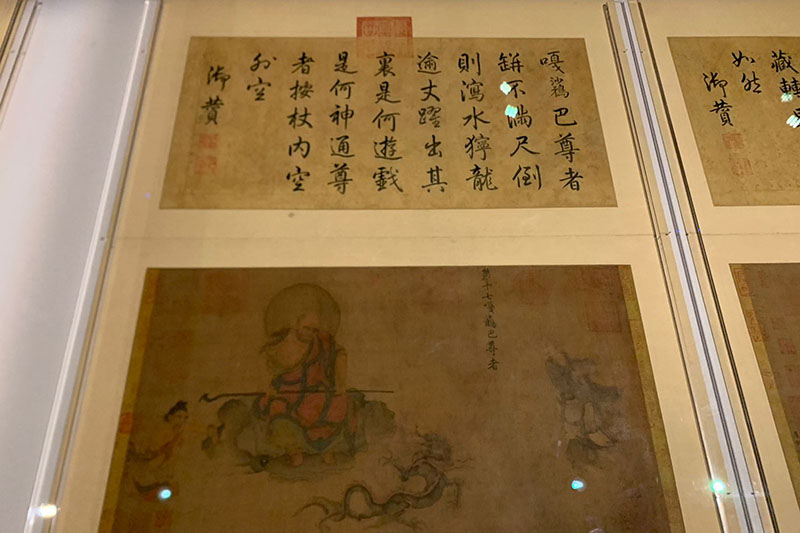 嘎巴尊者
缾不滿尺倒
則瀉水獰龍
逾丈躍出其
裏是何遊戲
是何神通尊
者按杖內空
外空
御贊
藏轉
如然
御贊
第十七嘎巴尊者